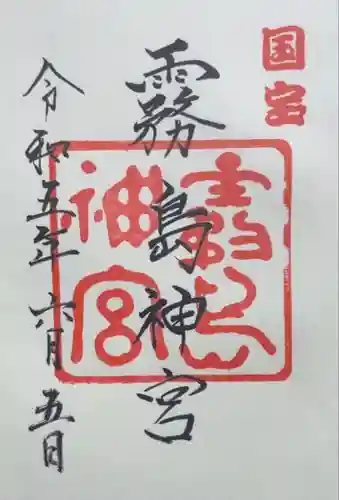 国宝
霧島神宮
霧島神宮
令和五年 六月 五日